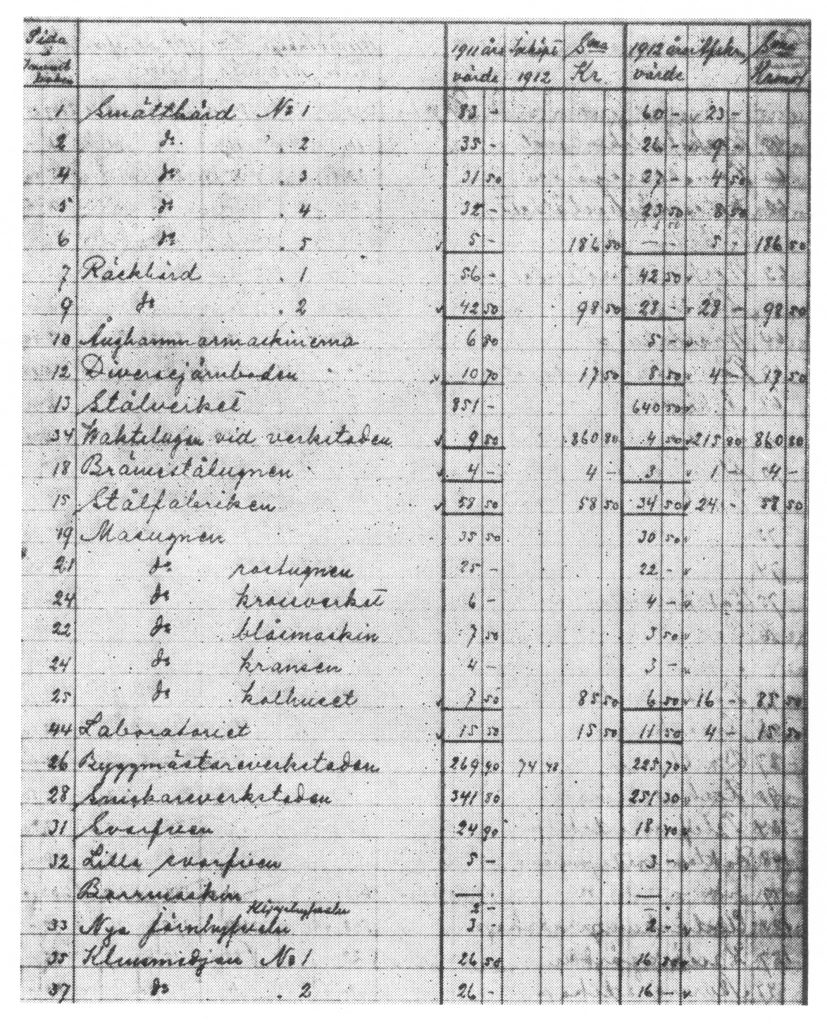 Sida i Inventboken 1911 års värde Inköpt 1912 S:ma Kr. 1912 års värde Afskr. S:ma Kronor
1 Smälthärd No 1 83 - 60 - 23 -
2 do . 2 35 - 26 - 9 -
4 do . 3 31 50 27 - 4 50
5 do . 4 32 - 23 50 8 50
6 do . 5 5 - 186 50 - - 5 - 186 50
7 Räckhärd . 1 56 - 42 50
9 do . 2 42 50 98 50 28 - 28 - 98 50
10 Ånghammarmaskinerna 6 80 5
12 Diversejärnboden 10 70 17 50 8 50 4 - 17 50
13 Stålverket 851 - 640 50
34 vid verkstaden 9 80 860 80 4 50 215 80 860 80
18 Brännstålugnen 4 - 4 - 3 - 1 - 4 -
15 Stålfabriken 58 50 58 50 34 50 24 - 58 50
19 Masugnen 35 50 30 50
21 do rostugnen 25 - 22 -
24 do krossverket 6 - 4 -
22 do blåsmaskin 7 50 3 50
24 do kransen 4 - 3 -
25 do kolhuset 7 50 85 50 6 50 16 - 85 50
44 Laboratoriet 15 50 15 50 11 50 4 - 15 50
26 Byggmästareverkstaden 269 90 74 40 225 70
28 Snickareverkstaden 341 80 251 30
31 Svarfven 24 90 18 40
32 Lilla svarfven 5 - 3 -
Borrmaskin - -
33 Nya järnhyfveln 3 2 -
35 Klensmedjan No 1 26 50 16 50
37 do . 2 26 - 16 -